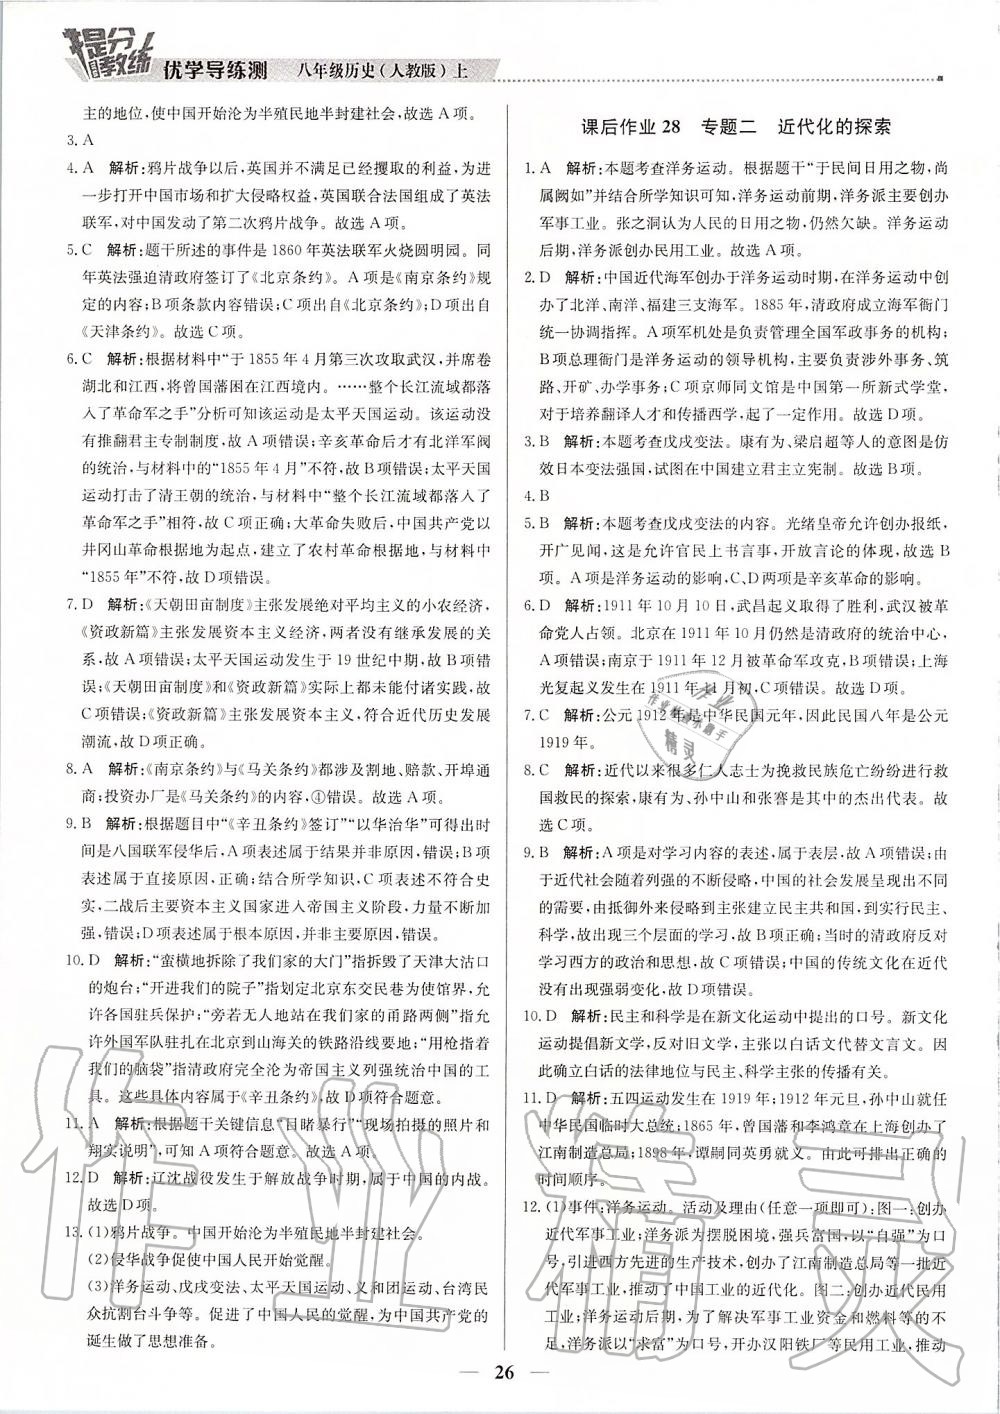 提分教练
优学导练测 八年级历史(人教版)上
主的地位,使中国开始沦为半殖民地半封建社会。故选A项。
3. A
4. A 解析:鸦片战争以后,英国并不满足已经攫取的利益,为进
一步打开中国市场和扩大侵略权益,英国联合法国组成了英法
联军,对中国发动了第二次鸦片战争。故选A项。
5. C 解析:题干所述的事件是1860年英法联军火烧圆明园。同
年英法强迫清政府签订了《北京条约》。A项是《南京条约》规
定的内容;B项条款内容错误;C项出自《北京条约》;D项出自
《天津条约》。故选C项。
6. C 解析:根据材料中“于1855年4月第三次攻取武汉,并席卷
湖北和江西,将曾国藩困在江西境内。……整个长江流域都落
入了革命军之手”分析可知该运动是太平天国运动。该运动没
有推翻君主专制制度,故A项错误;辛亥革命后才有北洋军阀
的统治,与材料中的“1855年4月”不符,故B项错误;太平天国
运动打击了清王朝的统治,与材料中“整个长江流域都落入了
革命军之手”相符,故C项正确;大革命失败后,中国共产党以
井冈山革命根据地为起点,建立了农村革命根据地,与材料中
“1855年”不符,故D项错误。
7. D 解析:《天朝田亩制度》主张发展绝对平均主义的小农经济,
《资政新篇》主张发展资本主义经济,两者没有继承发展的关
系,故A项错误;太平天国运动发生于19世纪中期,故B项错
误;《天朝田亩制度》和《资政新篇》实际上都未能付诸实践,故
C项错误;《资政新篇》主张发展资本主义,符合近代历史发展
潮流,故D项正确。
8. A 解析:《南京条约》与《马关条约》都涉及割地、赔款、开埠通
商;投资办厂是《马关条约》的内容,④错误。故选A项。
9. B 解析:根据题目中“《辛丑条约》签订”“以华治华”可得出时
间是八国联军侵华后,A项表述属于结果并非原因,错误;B项
表述属于直接原因,正确;结合所学知识,C项表述不符合史
实,二战后主要资本主义国家进入帝国主义阶段,力量不断加
强,错误;D项表述属于根本原因,并非主要原因,错误。
10. D 解析:“蛮横地拆除了我们家的大门”指拆毁了天津大沽口
的炮台;“开进我们的院子”指划定北京东交民巷为使馆界,允
许各国驻兵保护;“旁若无人地站在我们家的甬路两侧”指允
许外国军队驻扎在北京到山海关的铁路沿线要地;“用枪指着
我们的脑袋”指清政府完全沦为帝国主义列强统治中国的工
具。这些具体内容属于《辛丑条约》,故D项符合题意。
11. A 解析:根据题干关键信息“目睹暴行”“现场拍摄的照片和
翔实说明”,可知A项符合题意。故选A项。
12. D 解析:辽沈战役发生于解放战争时期,属于中国的内战。
故选D项。
13. (1)鸦片战争。中国开始沦为半殖民地半封建社会。
(2)侵华战争促使中国人民开始觉醒。
(3)洋务运动、戊戌变法、太平天国运动、义和团运动、台湾居
民众抗割台斗争等。促进了中国人民的觉醒,为中国共产党的
诞生做了思想准备。
课后作业28 专题二 近代化的探索
1. A 解析:本题考查洋务运动。根据题干“于民间日用之物,尚
属阙如”并结合所学知识可知,洋务运动前期,洋务派主要创办
军事工业。张之洞认为人民的日用之物,仍然欠缺。洋务运动
后期,洋务派创办民用工业。故选A项。
2. D 解析:中国近代海军创办于洋务运动时期,在洋务运动中创
办了北洋、南洋、福建三支海军。1885年,清政府成立海军衙门
统一协调指挥。A项军机处是负责管理全国军政事务的机构;
B项总理衙门是洋务运动的领导机构,主要负责涉外事务、筑
路、开矿、办学事务;C项京师同文馆是中国第一所新式学堂,
对于培养翻译人才和传播西学,起了一定作用。故选D项。
3. B 解析:本题考查戊戌变法。康有为、梁启超等人的意图是仿
效日本变法强国,试图在中国建立君主立宪制。故选B项。
4. B
5. B 解析:本题考查戊戌变法的内容。光绪皇帝允许创办报纸,
开广见闻,这是允许官民上书言事,开放言论的体现,故选B
项。A项是洋务运动的影响,C、D两项是辛亥革命的影响。
6. D 解析:1911年10月10日,武昌起义取得了胜利,武汉被革
命党人占领。北京在1911年10月仍然是清政府的统治中心,
A项错误;南京于1911年12月被革命军攻克,B项错误;上海
光复起义发生在1911年11月初,C项错误。故选D项。
7. C 解析:公元1912年是中华民国元年,因此民国八年是公元
1919年。
8. C 解析:近代以来很多仁人志士为挽救民族危亡纷纷进行救
国救民的探索,康有为、孙中山和张謇是其中的杰出代表。故
选C项。
9. B 解析:A项是对学习内容的表述,属于表层,故A项错误。由
于近代社会随着列强的不断侵略,中国的社会发展呈现出不同
的需要,由抵御外来侵略到主张建立民主共和国,到实行民主、
科学,故出现三个层面的学习,故B项正确;当时的清政府反对
学习西方的政治和思想,故C项错误;中国的传统文化在近代
没有出现强弱变化,故D项错误。
10. D 解析:民主和科学是在新文化运动中提出的口号。新文化
运动提倡新文学,反对旧文学,主张以白话文代替文言文。因
此确立白话的法律地位与民主、科学主张的传播有关。
11. D 解析:五四运动发生在1919年;1912年元旦,孙中山就任
中华民国临时大总统;1865年,曾国藩和李鸿章在上海创办了
江南制造总局;1898年,谭嗣同英勇就义。由此可排出正确的
时间顺序。
12. (1)事件:洋务运动。活动及理由(任意一项即可):图一:创办
近代军事工业;洋务派为摆脱困境,强兵富国,以“自强”为口
号,引进西方先进的生产技术,创办了江南制造总局等一批近
代军事工业,推动了中国工业的近代化。图二:创办近代民用
工业;洋务运动后期,为了解决军事工业资金和燃料等的不
足,洋务派以“求富”为口号,开办汉阳铁厂等民用工业,推动
26
作业精灵